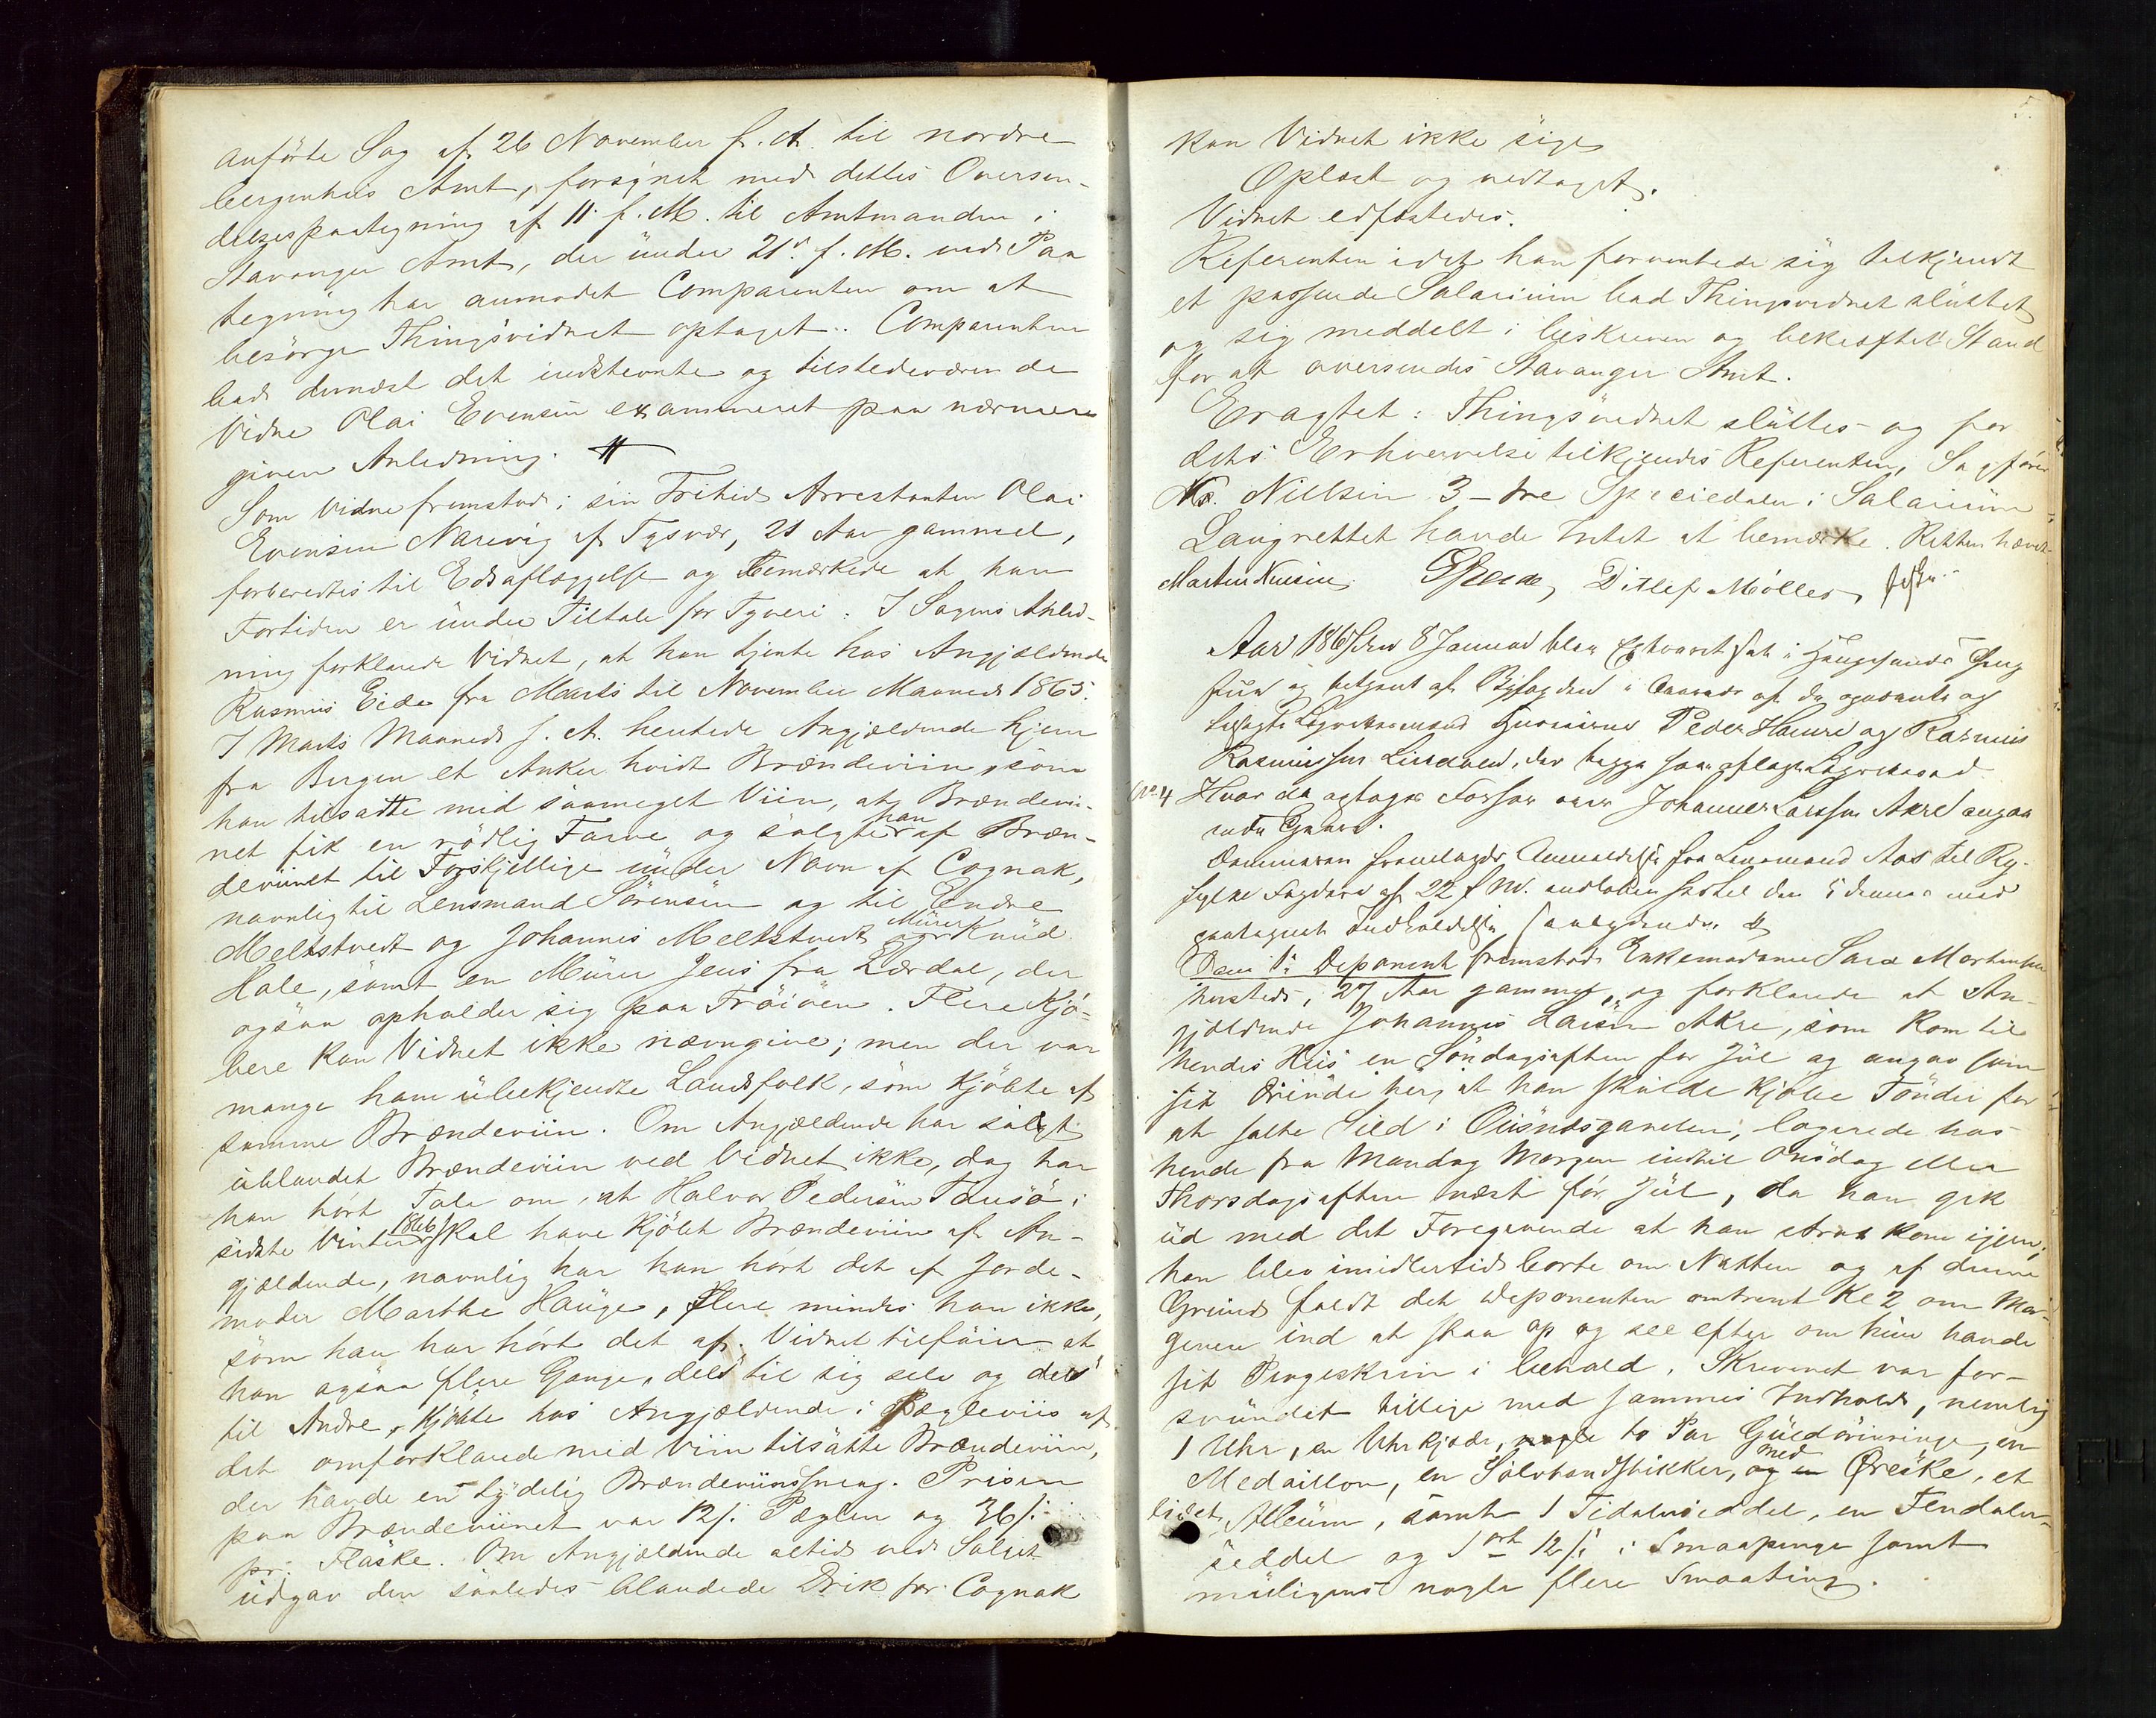 anförte Sag af 26 November f. A. til nordre
bergenhus Amt, forsynet med dettes Oversen-
delsespaategning af 11 f. M. til Amtmanden i
Stavanger Amt, der under 21de f. M. ved Paa
tegning har anmodet Comparenten om at
besörge Thingsvidnet optaget.. Comparenten
bad dernæst det indstevnte og tilstedeværende
Vidne Olai Evensen examineret paa nærmere
given Anledning. #
Som Vidne fremstod i sin Frihed Arrestanten Olai
Evensen Narevig af Tysvær, 21 Aar gammel,
forberedtes til Edsaflæggelse og bemærkede at han
Fortiden er under Tiltale for Tyveri. I Sagens Anled-
ning forklarede Vidnet, at han tjente hos Angjældende
Rasmus Eide fra Marts til November Maaned 1865.
I Marts Maaned s. A. hentede Angjældende hjem
fra Bergen et Anker hvidt Brændeviin, som
han tilsatte med saameget Viin, at Brændevi-
net fik en rödlig Farve og solgte han af Bræn-
deviinet til Forskjellige under Navn af Cognak,
navnlig til Lensmand Sörensen og til Endre
Meltstvedt og Johannes Meltstvedt og Murer Knud
Hole, samt en Murer Jens fra Lærdal, der
ogsaa opholder sig paa Fröiöen. Flere Kjö-
bere kan Vidnet ikke nævngive; men der var
mange ham übekjendte Landsfolk, som kjöbte af
samme Brændeviin. Om Angjældende har solgt
ublandet Brændeviin ved Vidnet ikke, dog har
han hört Tale om, at Halvor Pedersen Fausö i
sidste Vinter 1866 skal have kjöbt Brændeviin af An-
gjældende, navnlig har han hört det af Jorde-
moder Marthe Hauge, flere mindes han ikke,
som han har hört det af. Vidnet tilföier at
han ogsaa flere Gange, dels til sig selv og dels
til Andre, kjöbte hos Angjældende i Pægleviis af
det omforklarede med Viin tilsatte Brændeviin,
der havde en tydelig Brændeviinssmag. Prisen
paa Brændeviinet var 12 s. Pæglen og 36 s.
pr. Flaske. Om Angjældende altid ved Salget
udgav den saaledes blandede Drik for Cognak
5.
kan Vidnet ikke sige
Oplæst og vedtaget.
Vidnet edfæstedes.
Referenten idet han forventede sig tilkjendt
et passende Salarium bad Thingsvidnet sluttet
og sig meddelt i beskreven og bekræftet Stand
for at oversendes Stavanger Amt.
Eragtet: Thingsvidnet sluttes og for
dets Erhvervelse tilkjendes Referenten, Sagförer
Nielsen 3 – tre Speciedaler i Salarium
Laugrettet havde Intet at bemærke. Retten hævet.
Morten Ditlef Möller,
Aar 1867 den 8 Januar blev Extraret sat i Haugesunds Thing
stue og betjent af Byfogden i Overvær af de opnævnte og
Laugrettesmænd Peder Hauge og Rasmus
Rasmussen der begge have aflagt Laugretteseed.
No. 4 Hvor da optoges Forhör over Johannes Larssen Akre angaa
ende Tyveri.
Dommeren fremlagde Anmeldelse fra Lensmand Aas til Ry-
fylke Fogderi af 22 f. M. den 5 dennes med
#
Som 1ste Deponent fremstod Enkemadame Sara Mortensen
hersteds, 27 Aar gammel, og forklarede at An-
gjældende Johannes Larsen Akre, som kom til
hendes Huus en Söndagsaften för Jül og angav som
sit Ærinde her, at han skulde kjöbe Tönder for
at salte Sild i logerede hos
hende fra Mandag Morgen indtil Onsdag eller
Thorsdagsaften næst för Jül, da han gik
üd med det Foregivende at han strax kom igjen;
han blev imidlertid borte om Natten og af denne
Grund faldt det Deponenten omtrent Kl 2 om Mor-
genen ind at staa op og see efter om hun havde
sit Pengeskrin i behold. Skrinet var for-
svundet tillige med sammes Indhold, nemlig
1 Uhr, en Uhrkjæde, nogle to Par Guldörinringe, en
Medaillon, en Sölvhandstikker, og en med Öreske, et
lidet Album, samt 1 Tidalerseddel, en Femdaler-
seddel og 1 ort 12 s. i Smaapenge samt
muligens nogle flere Smaating.